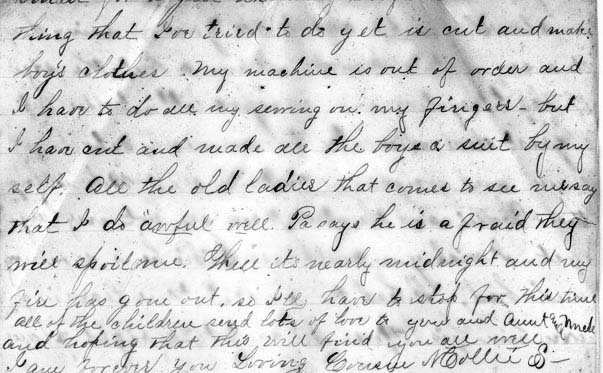 thing that I've tried to do yet is cut and make
boy's clothes. My machine is out of order and
I have to do all my sewing on my fingers - but
I have cut and made all the boys a suit by my
self. All the old ladies that comes to see me say
that I do awful well. Pa says he is afraid they
will spoil me. Well it's nearly midnight and my
fire has gone out, so I'll have to stop for this time
all of the children send lots of love to you and Aunt & Uncle
and hoping that this will find you all well
I am forever you Loving Cousin Mollie S-